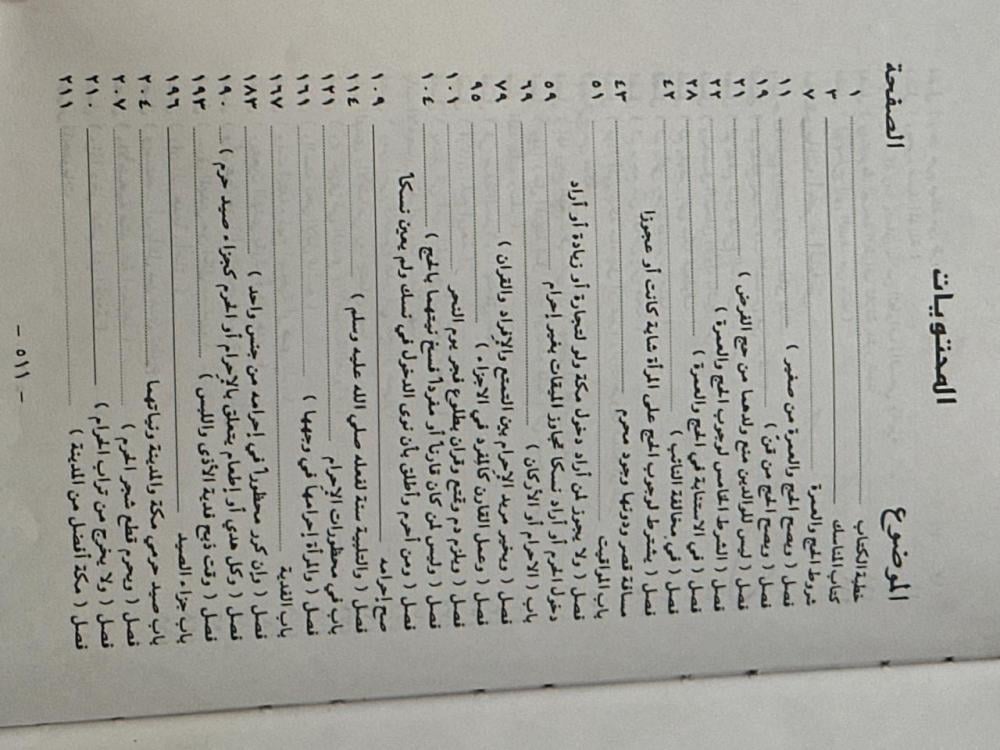 المحتويات
الموضوع الصفحة
خطبة الكتاب ١
كتاب المناسك ٣
شروط الحج والعمرة ٧
فصل ( ويصح الحج والعمرة من صغير ) ١١
فصل ( ويصح الحج من قنّ ) ١٩
فصل ( ليس للوالدين منع ولدهما من حج الفرض ) ٢١
فصل ( الشرط الخامس لوجوب الحج والعمرة ) ٢٢
فصل ( في الاستنابة في الحج والعمرة ) ٢٨
فصل ( في مخالفة النائب ) ٤٢
فصل ( يشترط لوجوب الحج على المرأة شابة كانت أو عجوزا
مسافة قصر ودونها وجود محرم ٤٣
باب المواقيت ٥١
فصل ( ولا يجوز لمن أراد دخول مكة ولو لتجارة أو زيادة أو أراد
دخول الحرم أو أراد نسكا تجاوز الميقات بغير إحرام ٥٩
باب ( الاحرام أو الأركان ) ٦٩
فصل ( ويخير مريد الإحرام بين التمتع والإفراد والقران ) ٧٩
فصل ( وعمل القارن كالمفرد في الاجزاء ) ٩٥
فصل ( ويلزم دم وتمتع وقران بطلوع فجر يوم النحر ١٠١
فصل ( وليس لمن كان قارناً أو مفرداً فسخ نيتهما بالحج ) ١٠٤
فصل ( ومن أحرم وأطلق بأن نوى الدخول في نسك ولم يعين نسكاً
صح إحرامه ١٠٩
فصل ( والتلبية سنة لفعله صلى الله عليه وسلم ) ١١٤
باب في محظورات الإحرام ١٢١
فصل ( والمرأة إحرامها في وجهها ) ١٦١
باب الفدية ١٦٧
فصل ( وإن كرر محظوراً في إحرامه من جنس واحد ) ١٨٣
فصل ( وكل هدي أو إطعام يتعلق بالإحرام أو الحرم كجزاء صيد حرم ) ١٩٠
فصل ( وقت ذبح فدية الأذى واللبس ) ١٩٣
باب جزاء الصيد ١٩٦
باب صيد حرمي مكة والمدينة ونباتهما ٢٠٤
فصل ( ويحرم قطع شجر الحرم ) ٢٠٧
فصل ( ولا يخرج من تراب الحرام ) ٢١٠
فصل ( مكة أفضل من المدينة ) ٢١١
– ٥١١ –